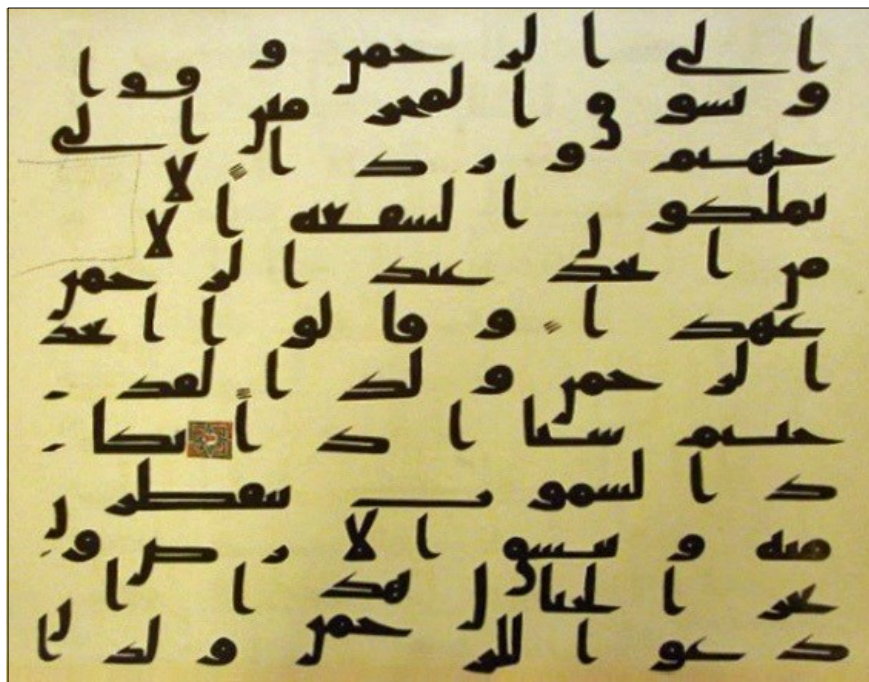 الى الرحمن وفدا
ونسوق المجرمين الى
جهنم وردا لا
يملكون الشفعه الا
من اتخذ عند الرحمن
عهدا وقالوا اتخذ
الرحمن ولدا لقد
جئتم شيا ادا تكا
د السموت يتفطرن
منه وتنشق الارض و
تخر الجبال هدا ان
دعوا للرحمن ولدا